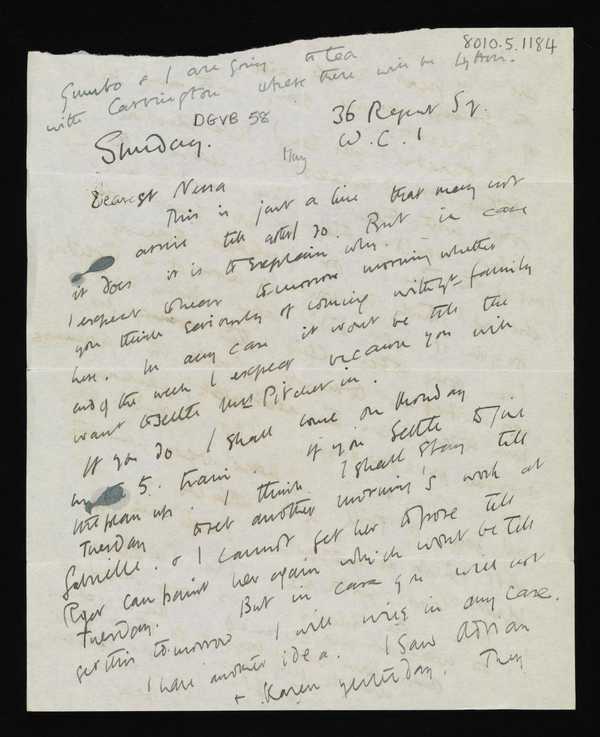 8010.5.1184
Gumbo & I are going to tea
with Carrington where there will be Lytton.
DGVB 58
36 Regent Sq.
W.C.1
Sunday.
May
Dearest Nessa
This is just a line that may not
arrive till after I do. But in case
it does it is to explain why.
I expect to hear tomorrow morning whether
you think seriously of coming with yr family
here. In any case it wont be till the
end of the week I expect because you will
want to settle Mrs Pitcher in.
If you do I shall come on Monday
by the 5. train. If you settle to give
the plan up. I think I shall stay till
Tuesday to get another morning's work at
Gabrielle. & I cannot get her to pose till
Roger can paint her again which wont be till
Tuesday. But in case you will not
get this tomorrow I will wire in any case.
I have another idea. I saw Adrian
+ Karen yesterday. They